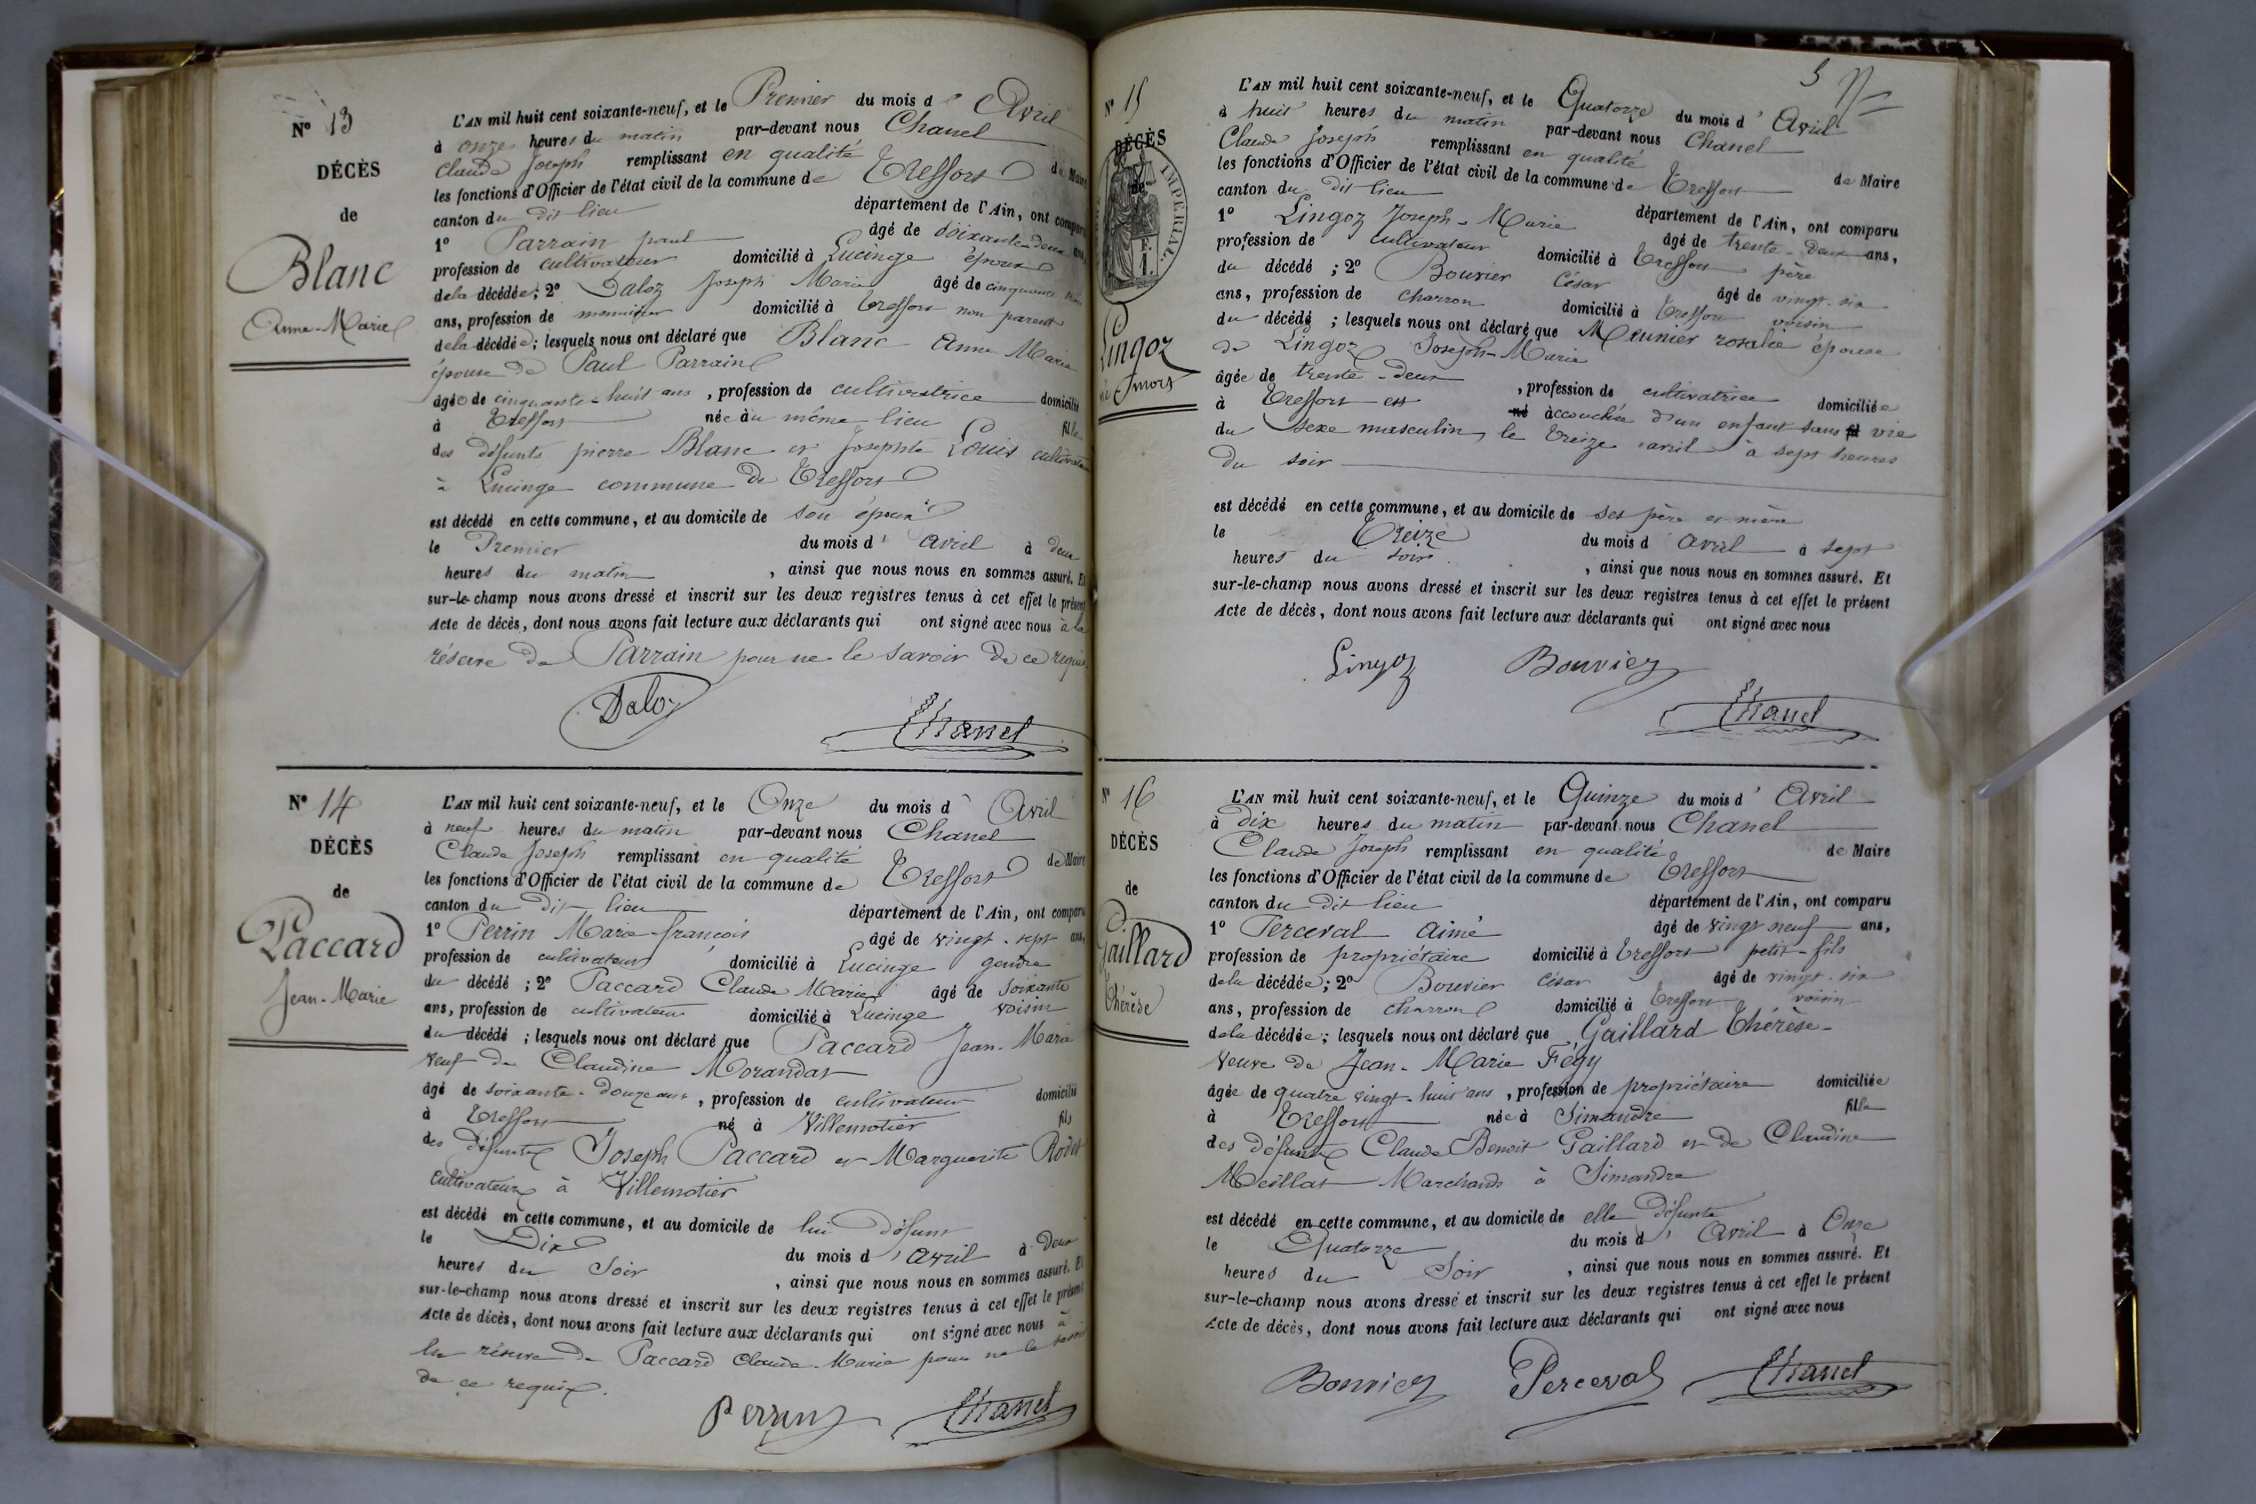 Nº 13
DÉCÈS
de
Blanc
Anne-Marie
L'AN mil huit cent soixante-neuf, et le Premier du mois d'Avril
à onze heures du matin par-devant nous Chanel
Claude Joseph remplissant en qualité de Maire
les fonctions d'Officier de l'état civil de la commune de Treffort
canton du dit lieu département de l'Ain, ont comparu
1º Parrain paul âgé de soixante-deux ans,
profession de cultivateur domicilié à Lucinge époux
de la décédée; 2º Daloz Joseph Marie âgé de cinquante
ans, profession de menuisier domicilié à Treffort non parent
de la décédée; lesquels nous ont déclaré que Blanc Anne Marie
épouse de Paul Parrain
âgée de cinquante-huit ans, profession de cultivatrice domicilié
à Treffort née au même lieu fille
des défunts pierre Blanc et Josephte Louis cultivateurs
à Lucinge commune de Treffort
est décédé en cette commune, et au domicile de son époux
le Premier du mois d'avril à deux
heures du matin, ainsi que nous nous en sommes assuré. Et
sur-le-champ nous avons dressé et inscrit sur les deux registres tenus à cet effet le présent
Acte de décès, dont nous avons fait lecture aux déclarants qui ont signé avec nous à la
réserve de Parrain pour ne le savoir de ce requis
Daloz
Chanel
Nº 14
DÉCÈS
de
Paccard
Jean-Marie
L'AN mil huit cent soixante-neuf, et le Onze du mois d'Avril
à neuf heures du matin par-devant nous Chanel
Claude Joseph remplissant en qualité de Maire
les fonctions d'Officier de l'état civil de la commune de Treffort
canton du dit lieu département de l'Ain, ont comparu
1º Perrin Marie françois âgé de vingt-sept ans,
profession de cultivateur domicilié à Lucinge gendre
du décédé; 2º Paccard Claude Marie âgé de soixante
ans, profession de cultivateur domicilié à Lucinge voisin
du décédé; lesquels nous ont déclaré que Paccard Jean-Marie
veuf de Claudine Morandat
âgé de soixante-douze ans, profession de cultivateur domicilié
à Treffort né à Villemotier fils
des défunts Joseph Paccard et Marguerite Rodet
Cultivateurs à Villemotier
est décédé en cette commune, et au domicile de lui défunt
le Dix du mois d'avril à Deux
heures du Soir, ainsi que nous nous en sommes assuré. Et
sur-le-champ nous avons dressé et inscrit sur les deux registres tenus à cet effet le présent
Acte de décès, dont nous avons fait lecture aux déclarants qui ont signé avec nous à
la réserve de Paccard Claude-Marie pour ne le savoir
de ce requis.
Perrin
Chanel
5
Nº 15
DÉCÈS
de
IMPÉRIAL
Lingoz
né mort
L'AN mil huit cent soixante-neuf, et le Quatorze du mois d'Avril
à huit heures du matin par-devant nous Chanel
Claude Joseph remplissant en qualité de Maire
les fonctions d'Officier de l'état civil de la commune de Treffort
canton du dit lieu département de l'Ain, ont comparu
1º Lingoz Joseph-Marie âgé de trente-deux ans,
profession de cultivateur domicilié à Treffort père
du décédé; 2º Bouvier César âgé de vingt-six
ans, profession de charron domicilié à Treffort voisin
du décédé; lesquels nous ont déclaré que Meunier rosalie épouse
de Lingoz Joseph-Marie
âgée de trente-deux, profession de cultivatrice domiciliée
à Treffort est né accouchée d'un enfant sans vie
du sexe masculin, le treize avril à sept heures
du soir
est décédé en cette commune, et au domicile de ses père et mère
le Treize du mois d'avril à sept
heures du soir, ainsi que nous nous en sommes assuré. Et
sur-le-champ nous avons dressé et inscrit sur les deux registres tenus à cet effet le présent
Acte de décès, dont nous avons fait lecture aux déclarants qui ont signé avec nous
Lingoz
Bouvier
Chanel
Nº 16
DÉCÈS
de
Gaillard
Thérèse
L'AN mil huit cent soixante-neuf, et le Quinze du mois d'Avril
à Dix heures du matin par-devant nous Chanel
Claude Joseph remplissant en qualité de Maire
les fonctions d'Officier de l'état civil de la commune de Treffort
canton du dit lieu département de l'Ain, ont comparu
1º Perceval aimé âgé de vingt neuf ans,
profession de propriétaire domicilié à Treffort petit-fils
de la décédée; 2º Bouvier césar âgé de vingt-six
ans, profession de charron domicilié à Treffort voisin
de la décédée; lesquels nous ont déclaré que Gaillard Thérèse
Veuve de Jean-Marie Fégy
âgée de quatre vingt-huit ans, profession de propriétaire domiciliée
à Treffort née à Simandre fille
des défunts Claude Benoit Gaillard et de Claudine
Meillat Marchands à Simandre
est décédé en cette commune, et au domicile de elle défunte
le Quatorze du mois d'Avril à Onze
heures du Soir, ainsi que nous nous en sommes assuré. Et
sur-le-champ nous avons dressé et inscrit sur les deux registres tenus à cet effet le présent
Acte de décès, dont nous avons fait lecture aux déclarants qui ont signé avec nous
Bouvier
Perceval
Chanel